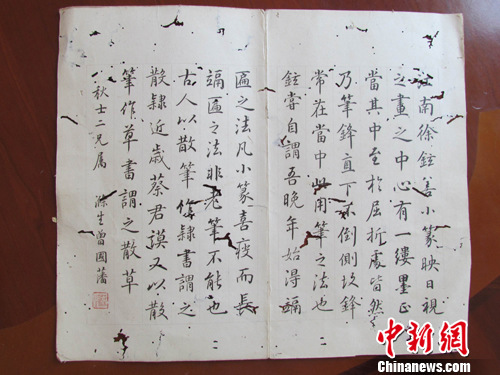 江南徐鉉善小篆映日視
之畫之中心有一縷墨正
當其中至於屈折處皆然
乃筆鋒直下不倒側故鋒
常在當中此用筆之法也
鉉嘗自謂吾晚年始得竵
匾之法凡小篆喜瘦而長
竵匾之法非老筆不能也
古人以散筆作隸書謂之
散隸近歲蔡君謨又以散
筆作草書謂之散草
秋士二兄屬 滌生曾國藩
中新网
WWW.CHINANEWS.COM